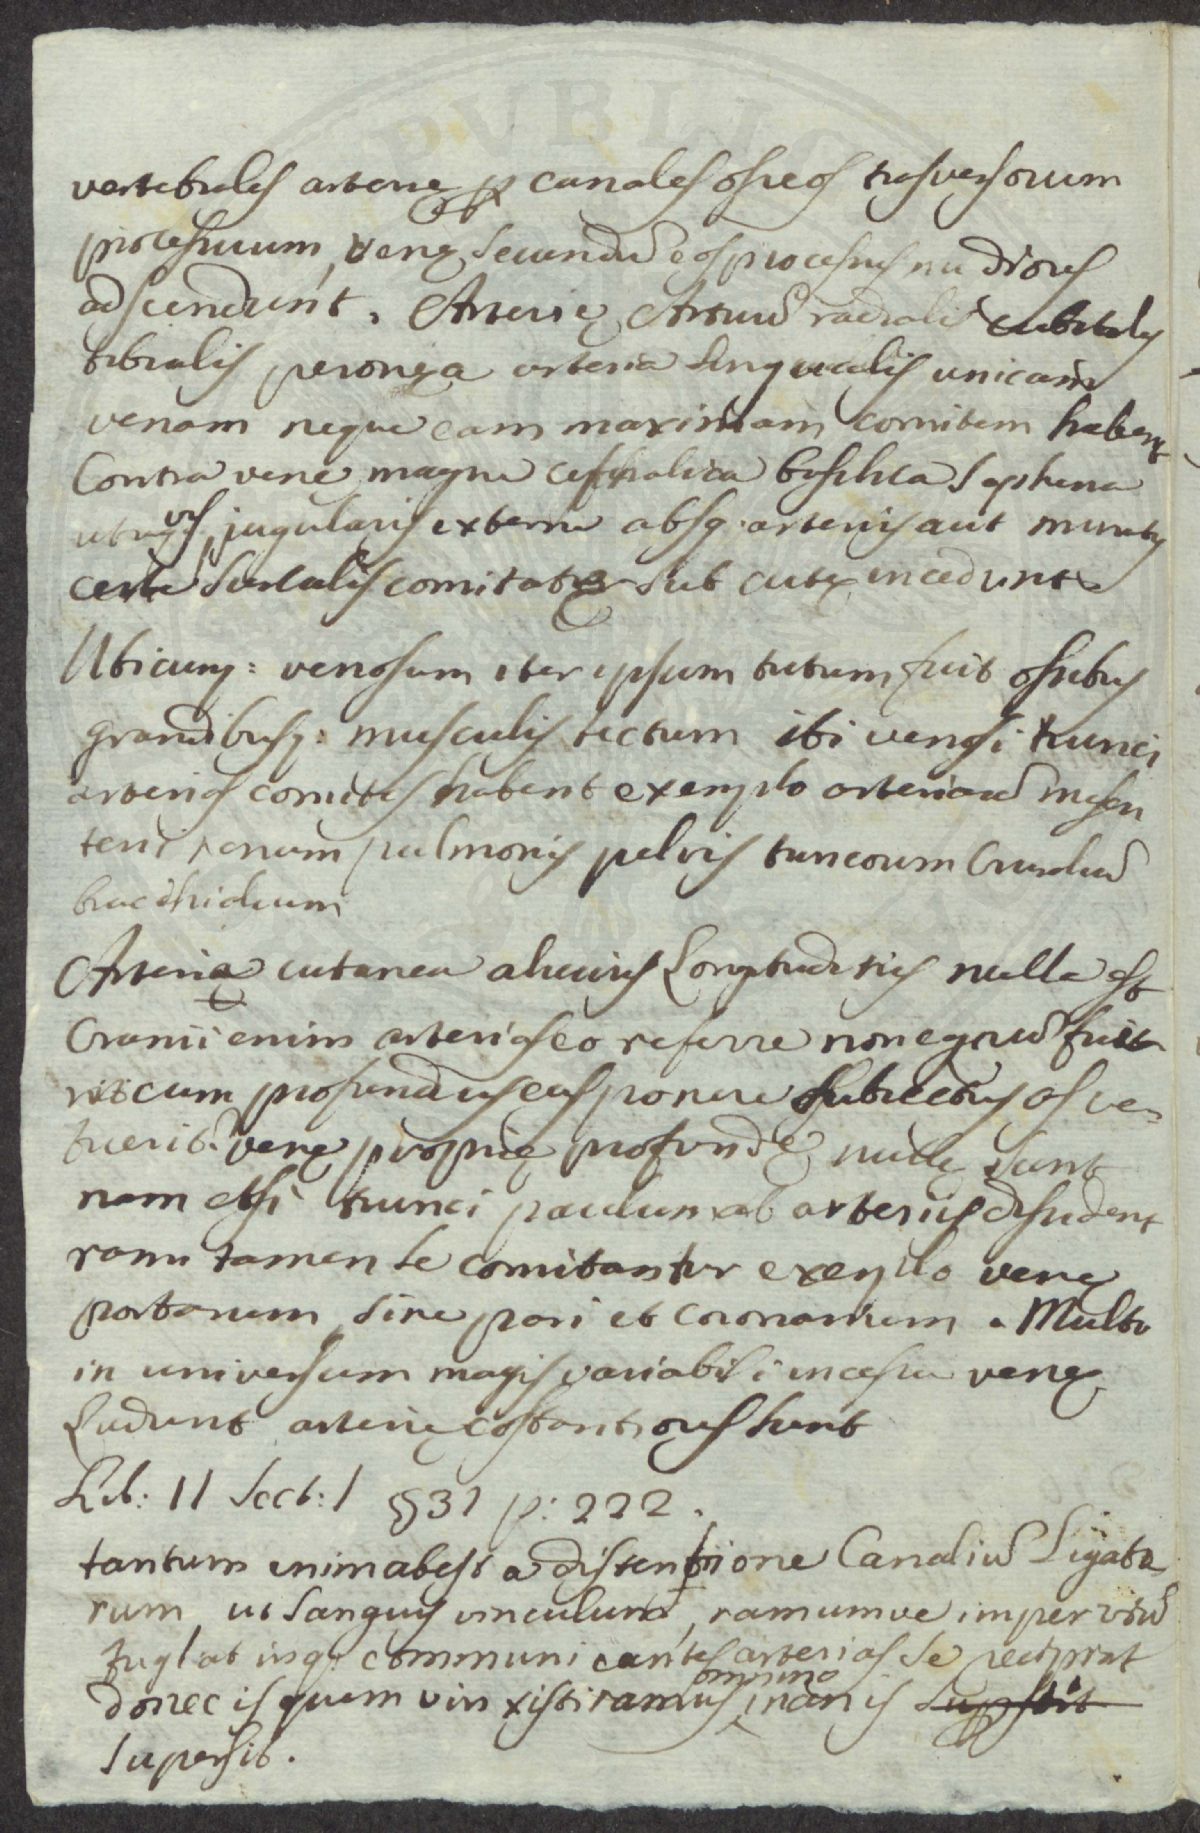 PVBLIC
vertebrales arterię ꝑ canales osseos trasversorum
processuum, venę secundū eos processus nudiores
adscendunt. Arterię Artuū radialis cubitalis
tibialis peronęa arteria lingualis unicam
venam neque eam maximam comitem habent
Contra venę magnę cephalica basilica saphena
utraqȝ jugularis externa absq: arteriis aut minutis
certe surculis comitatę sub cute incedunt
Ubicunq: venosum iter ipsum tutum fuit ossibus
grandibusq: musculis tectum ibi venosi trunci
arterias comites habent exemplo arteriarū mesen
terii renum pulmonis pelvis truncorum Cruraliū
bracchialium
Arteria cutanea alicuius Longitudinis nulla est
Cranii enim arterias eo referre non ęquū fuit
vis cum profundius eas ponere subiectus os ve-
tuerit. venę proprię profundę nullę sunt
nam etsi trunci paulum ab arteriis dissident
rami tamen se comitantur exemplo venę
portarum, sine pari et coronarium. Multo
in universum magis variabili incessu venę
Ludunt arterię costantiores sunt
Lib: II Sect: I § 31 p: 222.
tantum enim abest a distentione Canaliū Ligato-
rum, ut sanguis vinculum, ramumve imperviū
fugiat inqȝ communicantes arterias se recipiat
donec is quem vinxisti ramus omnino inanis supstit
supersit.